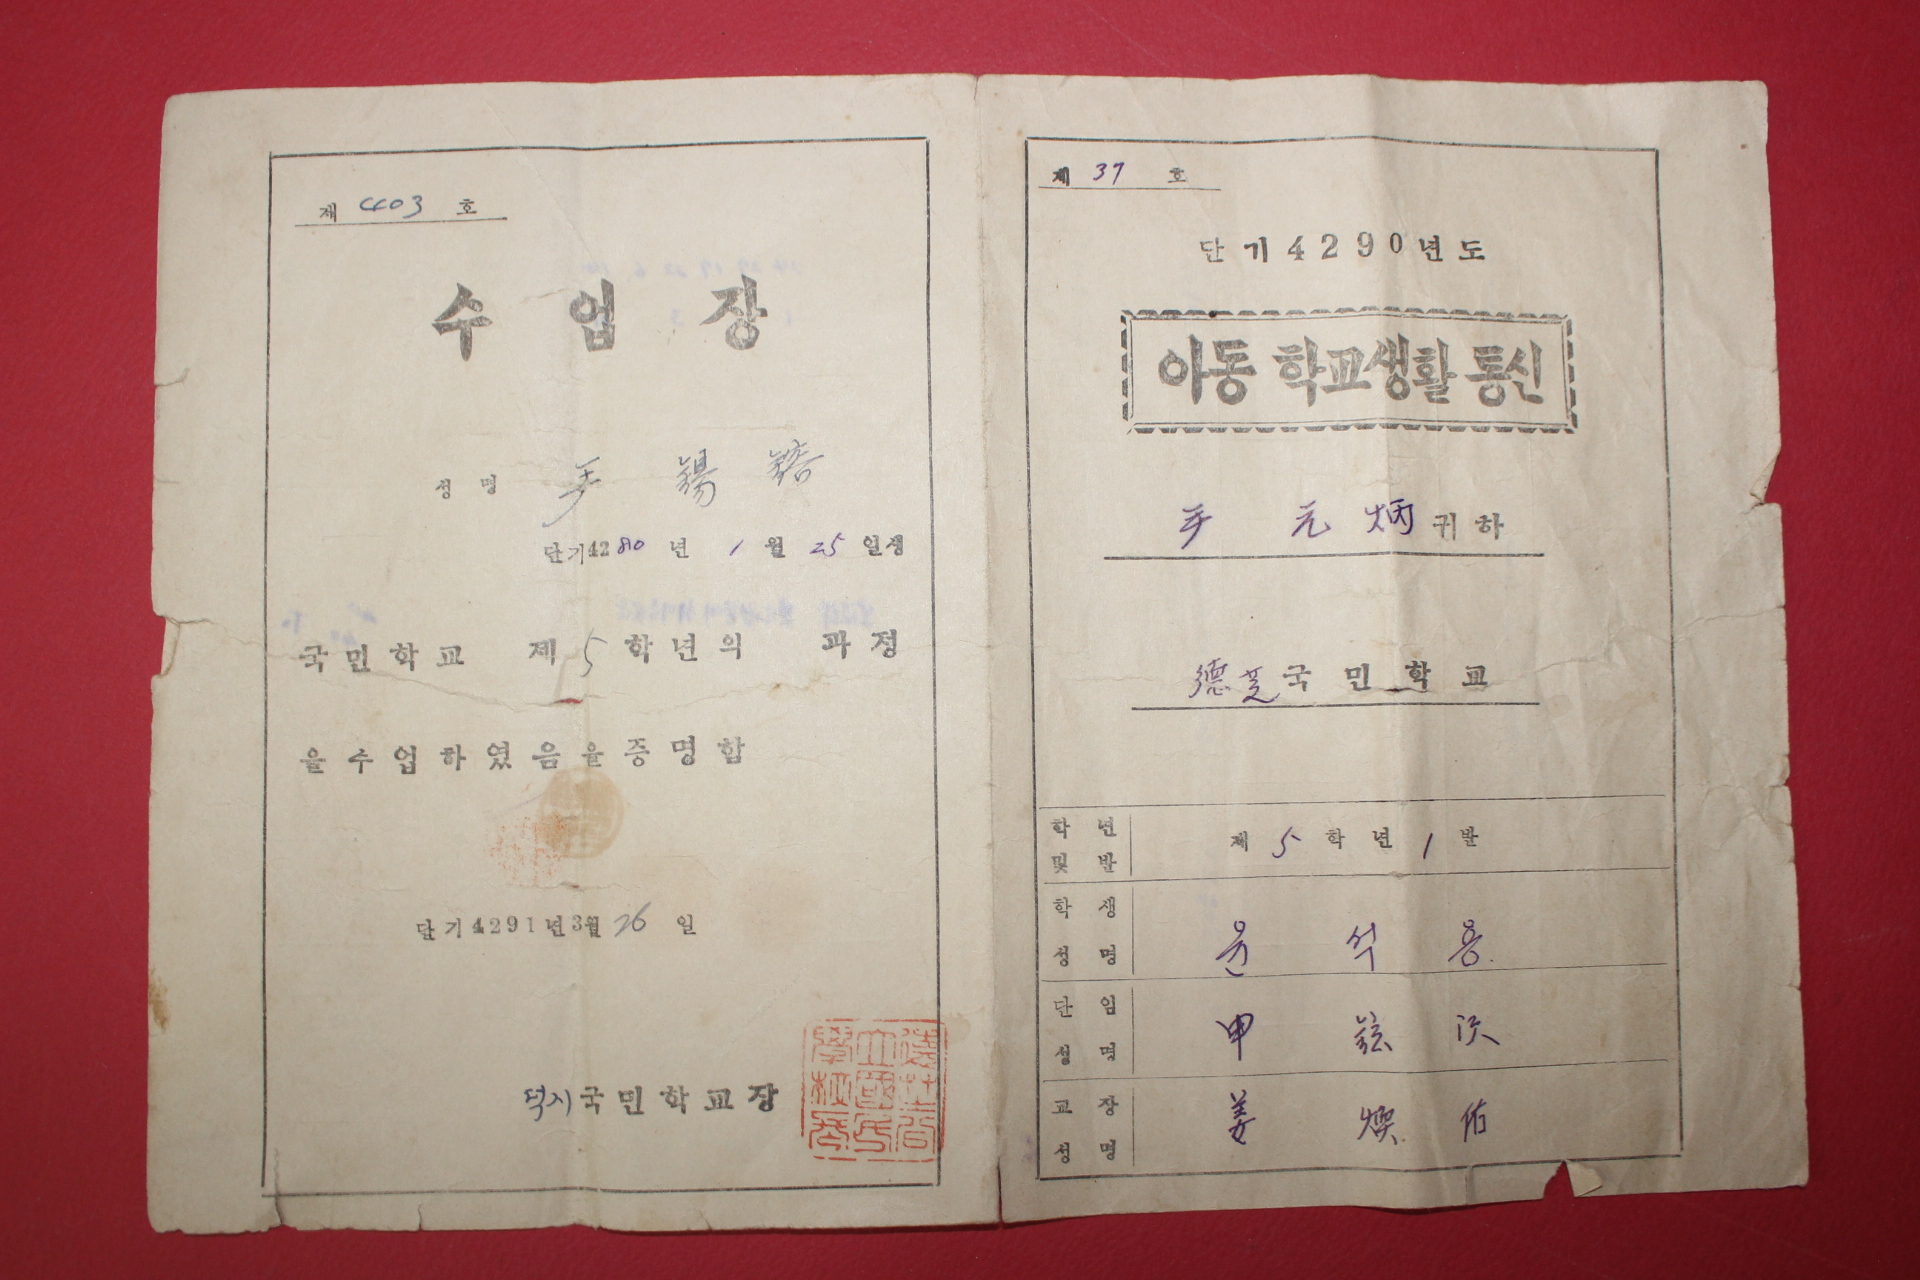 제 403 호
수 업 장
성 명
단기4280 년 1 월 25 일생
국민학교 제 5 학년의 과정
을 수업하였음을 증명함
단기4291년3월 26 일
덕지국민학교장
제 37 호
단기4290년도
아동 학교생활 통신
元 炳 귀하
德芝국민학교
학년 및 반 제 5 학년 1 반
학생 성명 윤 석 용
단임 성명 申 鉉 次
교장 성명 姜 煥 佑